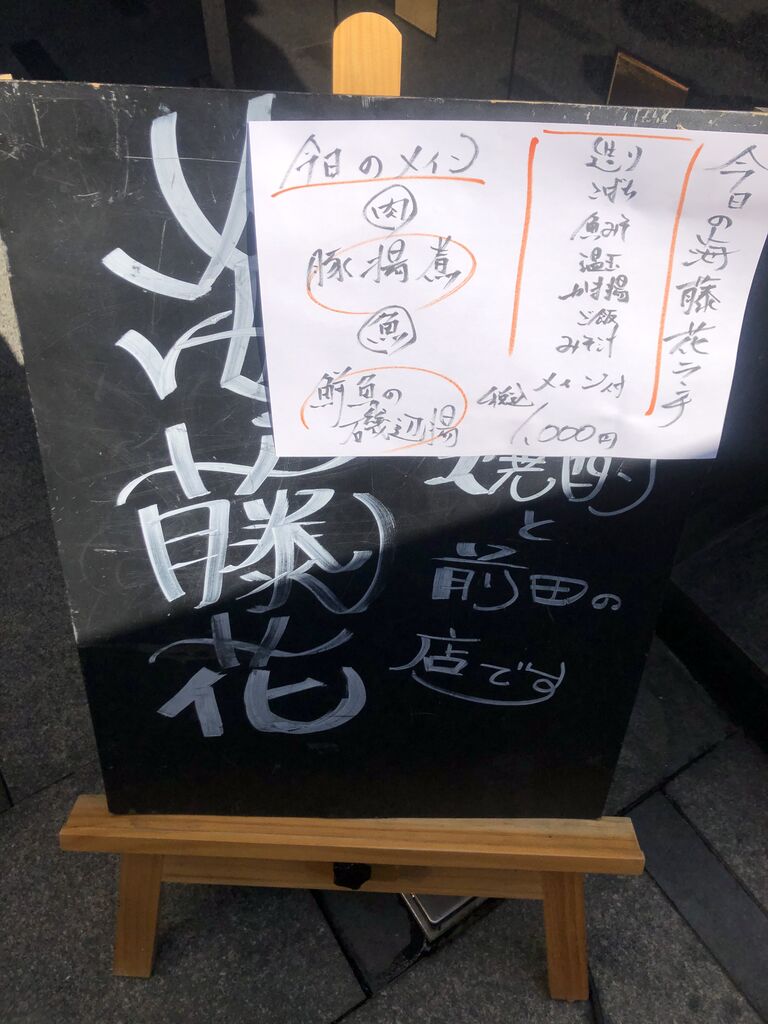 今日の海藤花ランチ
造り
こばち
魚みそ
温玉
かき揚
ご飯
みそ汁
メイン付
税込
1,000円
今日のメイン
肉
豚揚煮
魚
鮮魚の
磯辺揚
海
藤
花
焼酎
と
前田の
店です